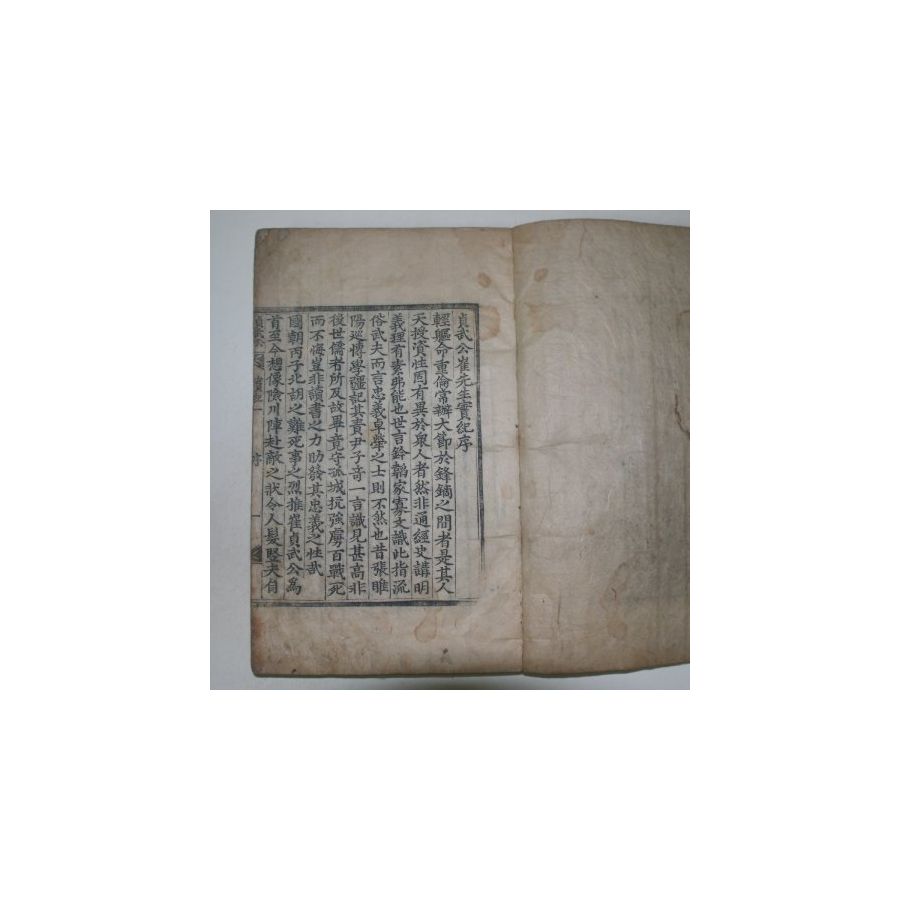 貞武公崔先生實紀序
輕軀命重倫常辦大節於鋒鏑之間者是其人
天授資性固有異於衆人者然非通經史講明
義理有素弗能也世言鈐韜家寡文識此指流
俗武夫而言忠義卓犖之士則不然也昔張睢
陽巡博學彊記其責尹子奇一言識見甚高非
後世儒者所及故畢竟守孤城抗強虜百戰死
而不悔豈非讀書之力助發其忠義之性哉
國朝丙子北胡之難死事之烈推崔貞武公爲
首至今想像險川陣赴敵之狀令人髮竪夫自
貞武公
序
一